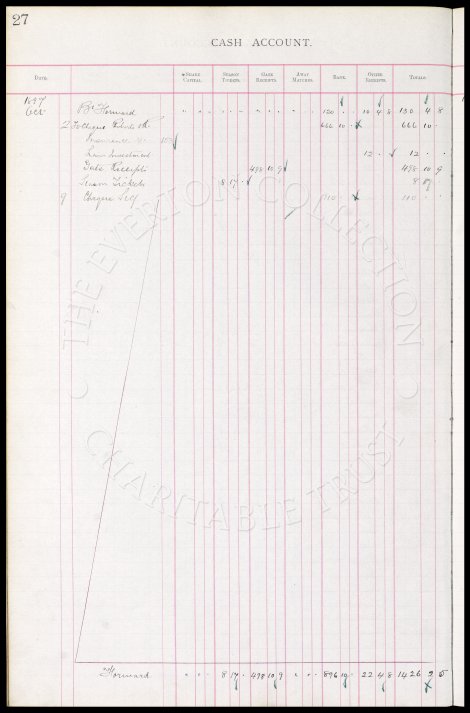 27
CASH ACCOUNT.
DATE. SHARE CAPITAL. SEASON TICKETS. GATE RECEIPTS. AWAY MATCHES. BANK. OTHER RECEIPTS. TOTALS.
1897
Oct Bt Forward 120 - - 10 4 8 130 4 8
2 To Cheque 666 10 - 666 10 -
Insurance
Law Investment 12 - - 12 - -
Gate Receipts 498 10 9 498 10 9
Season Tickets 8 17 - 8 17 -
9 Cheque Self 110 - - 110 - -
THE EVERTON COLLECTION
CHARITABLE TRUST
Forward 8 17 - 498 10 9 896 10 - 22 4 8 1426 2 5